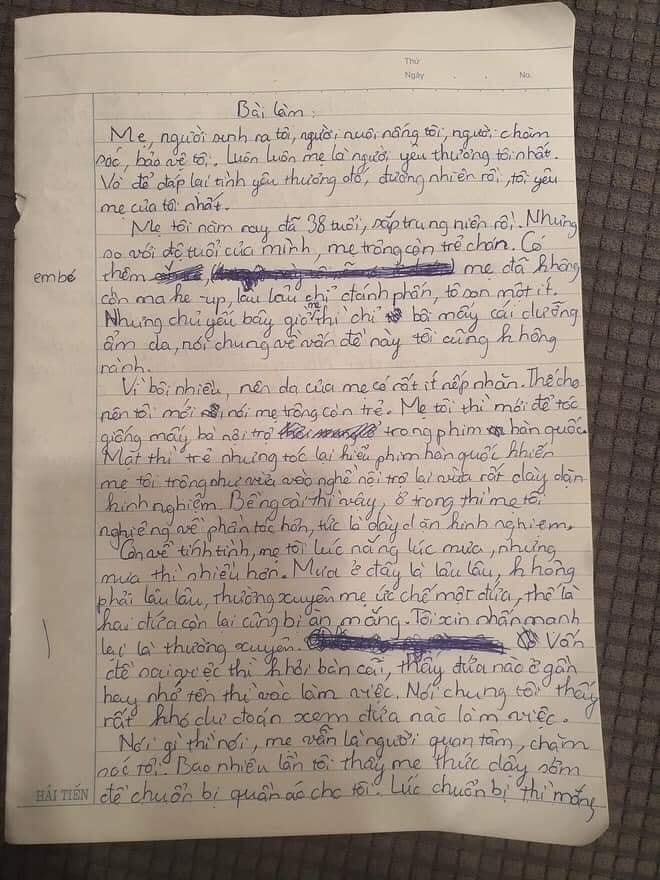 Thứ
Ngày . . No.
Bài làm:
Mẹ, người sinh ra tôi, người nuôi nống tôi, người chăm
sóc, bảo vệ tôi. Luôn luôn mẹ là người yêu thương tôi nhất.
Và để đáp lại tình yêu thương đó, đương nhiên rồi, tôi yêu
mẹ của tôi nhất.
Mẹ tôi năm nay đã 38 tuổi, sắp trung niên rồi. Nhưng
so với độ tuổi của mình, mẹ trông còn trẻ chán. Có
em bé
thêm mẹ đã không
còn make-up, lâu lâu chỉ đánh phấn, tô son một ít.
Nhưng chủ yếu bây giờ mẹ thì chỉ bôi mấy cái dưỡng
ẩm da, nói chung về vấn đề này tôi cũng không
rành.
Vì bôi nhiều, nên da của mẹ có rất ít nếp nhăn. Thế cho
nên tôi mới nói mẹ trông còn trẻ. Mẹ tôi thì mới để tóc
giống mấy bà nội trợ trong phim hàn quốc.
Mặt thì trẻ nhưng tóc lại kiểu phim hàn quốc khiến
mẹ tôi trông như vừa vào nghề nội trợ lại vừa rất dày dặn
kinh nghiệm. Bề ngoài thì vậy, ở trong thì mẹ tôi
nghiêng về phần tóc hơn, tức là dày dặn kinh nghiệm.
Còn về tính tình, mẹ tôi lúc nắng lúc mưa, nhưng
mưa thì nhiều hơn. Mưa ở đây là lâu lâu, không
phải lâu lâu, thường xuyên mẹ ức chế một đứa, thế là
hai đứa còn lại cũng bị ăn mắng. Tôi xin nhấn mạnh
lại là thường xuyên. Vấn
đề sai việc thì khỏi bàn cãi, thấy đứa nào ở gần
hay nhớ tên thì vác làm việc. Nói chung tôi thấy
rất khó dự đoán xem đứa nào làm việc.
Nói gì thì nói, mẹ vẫn là người quan tâm, chăm
sóc tôi. Bao nhiêu lần tôi thấy mẹ thức dậy sớm
HẢI TIẾN
để chuẩn bị quần áo cho tôi. Lúc chuẩn bị thì mắng